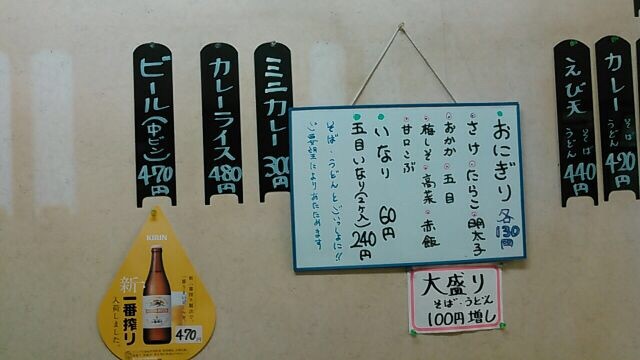 ビール(中ビン)
470円
カレーライス
480円
ミニカレー
300
おにぎり 各130円
さけ・たらこ・明太子
おかか・五目
梅しそ・高菜・赤飯
甘口こぶ
いなり 60円
五目いなり(2ケ入) 240円
そば・うどんとごいっしょに!!
ご要望によりあたためます
えび天 そば うどん
440円
カレー そば うどん
420円
大盛り
そば・うどん
100円増し
KIRIN
新・一番搾り
入荷しました。
470円